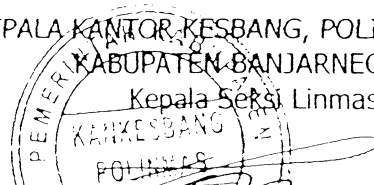 EPALA KANTOR KESBANG, POLI
KABUPATEN BANJARNEG
Kepala Seksi Linmas
PEMERIN
KANKESBANG
POLINMAS